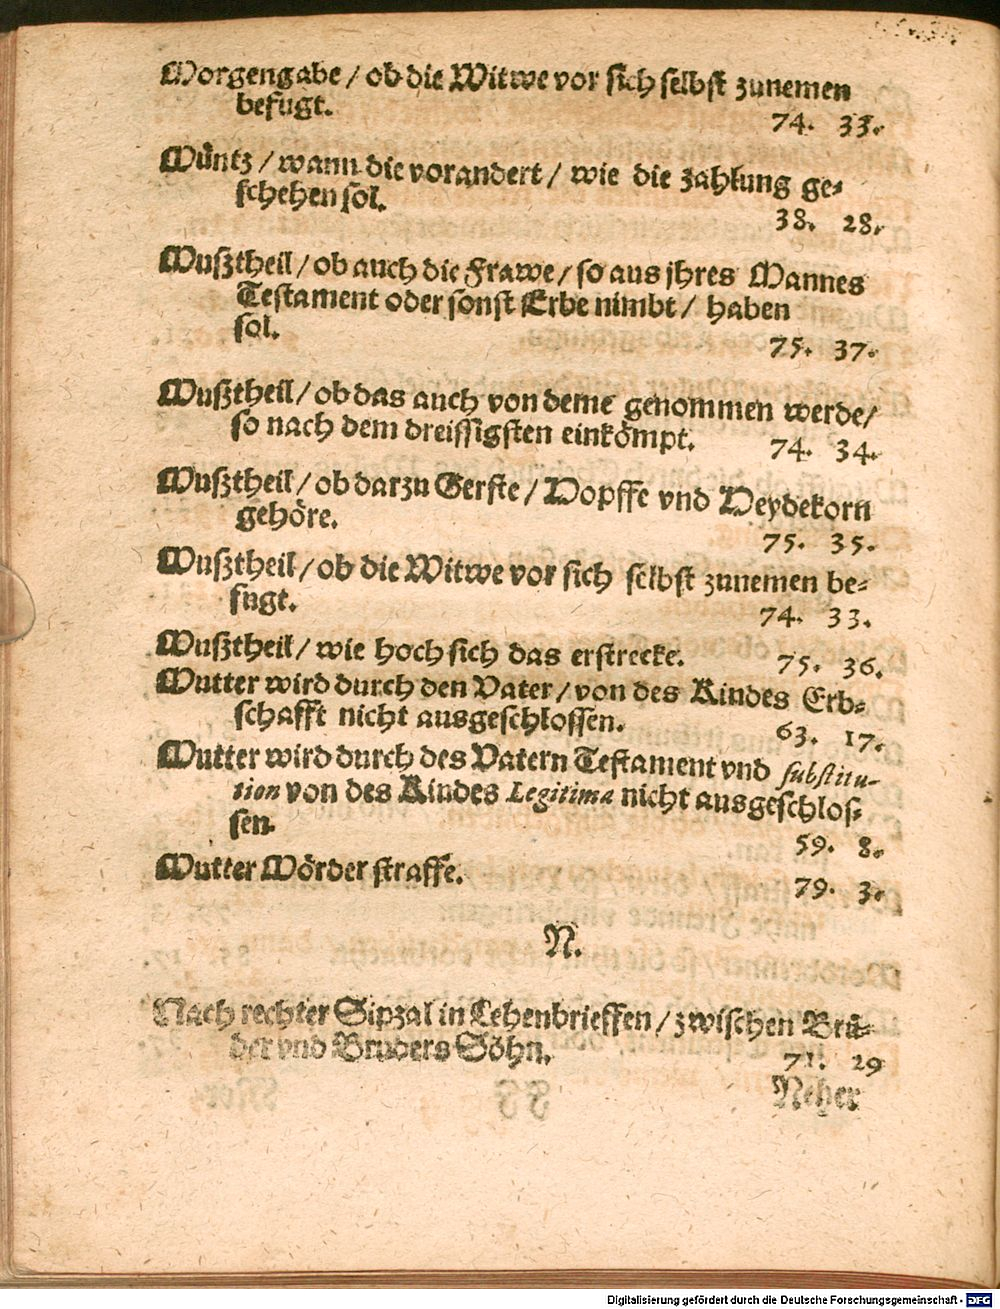 Morgengabe / ob die Witwe vor sich selbst zunemen
befugt. 74. 33.
Müntz / wann die vorandert / wie die zahlung ge-
schehen sol. 38. 28.
Mußtheil / ob auch die Frawe / so aus jhres Mannes
Testament oder sonst Erbe nimbt / haben
sol. 75. 37.
Mußtheil / ob das auch von deme genommen werde /
so nach dem dreissigsten einkömpt. 74. 34.
Mußtheil / ob darzu Gerste / Hopffe vnd Heydekorn
gehöre. 75. 35.
Mußtheil / ob die Witwe vor sich selbst zunemen be-
fugt. 74. 33.
Mußtheil / wie hoch sich das erstrecke. 75. 36.
Mutter wird durch den Vater / von des Kindes Erb-
schafft nicht ausgeschlossen. 63. 17.
Mutter wird durch des Vatern Testament vnd substitu-
tion von des Kindes Legitima nicht ausgeschlos-
sen. 59. 8.
Mutter Mörder straffe. 79. 3.
N.
Nach rechter Sipzal in Lehenbrieffen / zwischen Brü-
der vnd Bruders Söhn. 71. 29
Neher
Digitalisierung gefördert durch die Deutsche Forschungsgemeinschaft - DFG